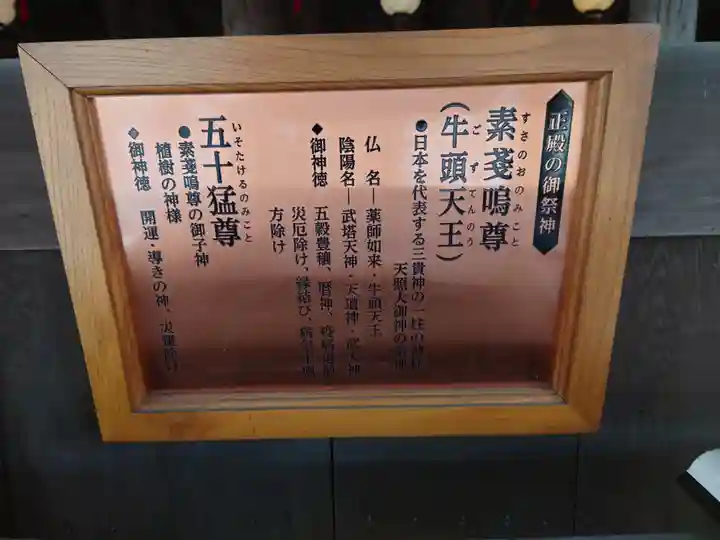 正殿の御祭神
素戔嗚尊
すさのおのみこと
(牛頭天王)
ごずてんのう
●日本を代表する三貴神の一柱の神様
天照大御神の
仏 名―薬師如来・牛頭天王
陰陽名―武塔天神・天道神・
◆御神徳 五穀豊穣、暦神、疫病
災厄除け、縁結び、
方除け
五十猛尊
いそたけるのみこと
●素戔嗚尊の御子神
植樹の神様
◆御神徳 開運・導きの神、災難除け